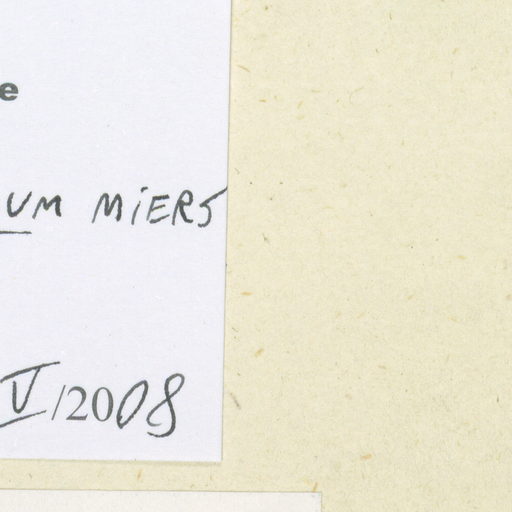 e
UM MiERS
V/2008